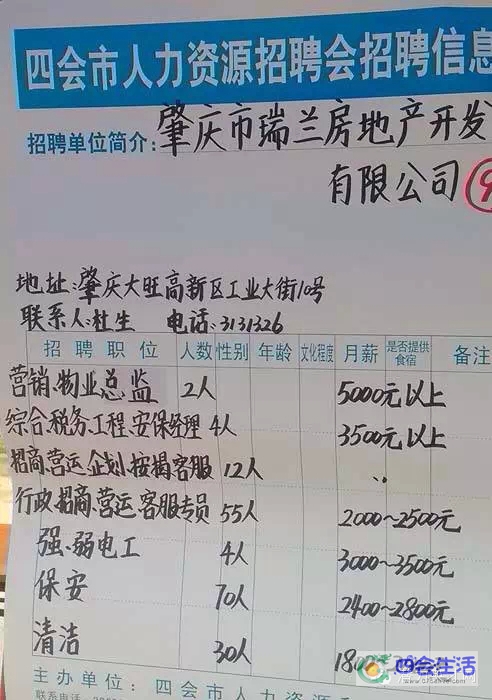 四会市人力资源招聘会招聘信息
招聘单位简介:肇庆市瑞兰房地产开发
有限公司
地址:肇庆大旺高新区工业大街10号
联系人:杜生 电话:3131326
招聘职位 人数 性别 年龄 文化程度 月薪 是否提供食宿 备注
营销、物业总监 2人 5000元以上
综合、税务、工程、安保经理 4人 3500元以上
招商、营运、企划、按揭客服 12人 〃
行政、招商、营运、客服专员 55人 2000~2500元
强、弱电工 4人 3000~3500元
保安 70人 2400~2800元
清洁 30人 1800
主办单位:四会市人力资源
联系电话:
四会生活